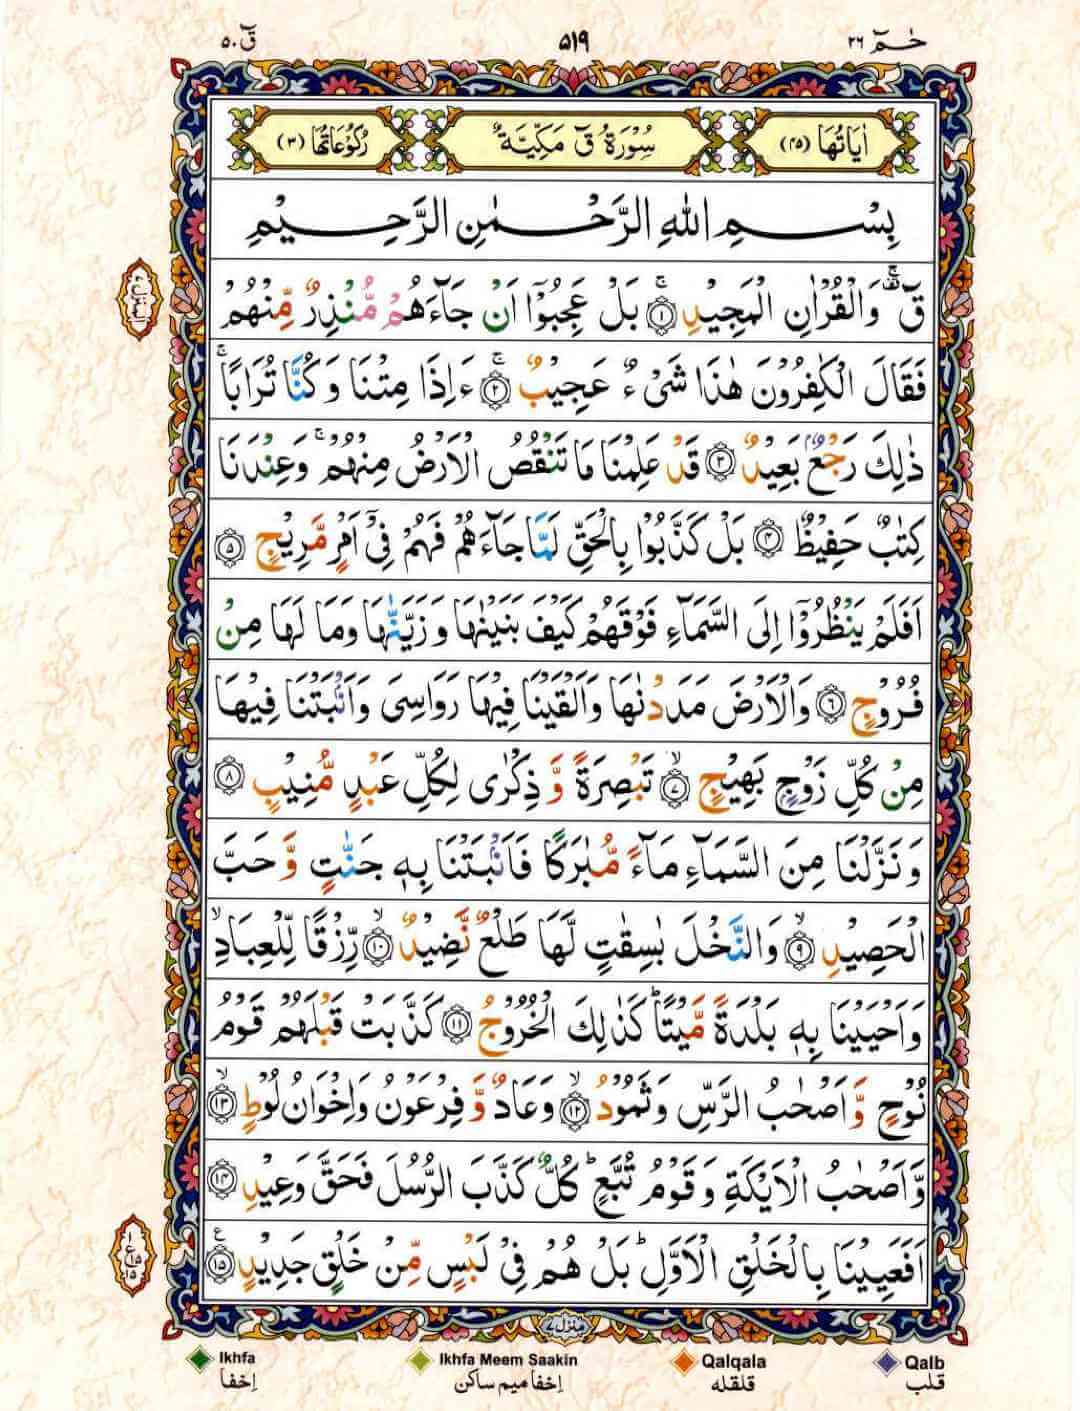 حٰمٓ ٢٦
٥١٩
قٓ ٥٠
اٰيَاتُهَا (٤٥)
سُوْرَةُ قٓ مَكِّيَّةٌ
رُكُوْعَاتُهَا (٣)
بِسْمِ اللّٰهِ الرَّحْمٰنِ الرَّحِيْمِ
قٓ ۚ وَالْقُرْاٰنِ الْمَجِيْدِ ۚ ﴿١﴾ بَلْ عَجِبُوْٓا اَنْ جَآءَهُمْ مُّنْذِرٌ مِّنْهُمْ
فَقَالَ الْكٰفِرُوْنَ هٰذَا شَيْءٌ عَجِيْبٌ ۚ ﴿٢﴾ ءَاِذَا مِتْنَا وَكُنَّا تُرَابًا ۚ
ذٰلِكَ رَجْعٌۢ بَعِيْدٌ ﴿٣﴾ قَدْ عَلِمْنَا مَا تَنْقُصُ الْاَرْضُ مِنْهُمْ ۚ وَعِنْدَنَا
كِتٰبٌ حَفِيْظٌ ﴿٤﴾ بَلْ كَذَّبُوْا بِالْحَقِّ لَمَّا جَآءَهُمْ فَهُمْ فِيْٓ اَمْرٍ مَّرِيْجٍ ﴿٥﴾
اَفَلَمْ يَنْظُرُوْٓا اِلَى السَّمَآءِ فَوْقَهُمْ كَيْفَ بَنَيْنٰهَا وَزَيَّنّٰهَا وَمَا لَهَا مِنْ
فُرُوْجٍ ﴿٦﴾ وَالْاَرْضَ مَدَدْنٰهَا وَاَلْقَيْنَا فِيْهَا رَوَاسِيَ وَاَنْۢبَتْنَا فِيْهَا
مِنْ كُلِّ زَوْجٍۢ بَهِيْجٍ ۙ ﴿٧﴾ تَبْصِرَةً وَّ ذِكْرٰى لِكُلِّ عَبْدٍ مُّنِيْبٍ ﴿٨﴾
وَنَزَّلْنَا مِنَ السَّمَآءِ مَآءً مُّبٰرَكًا فَاَنْۢبَتْنَا بِهٖ جَنّٰتٍ وَّ حَبَّ
الْحَصِيْدِ ۙ ﴿٩﴾ وَالنَّخْلَ بٰسِقٰتٍ لَّهَا طَلْعٌ نَّضِيْدٌ ۙ ﴿١٠﴾ رِّزْقًا لِّلْعِبَادِ ۙ
وَاَحْيَيْنَا بِهٖ بَلْدَةً مَّيْتًا ؕ كَذٰلِكَ الْخُرُوْجُ ﴿١١﴾ كَذَّبَتْ قَبْلَهُمْ قَوْمُ
نُوْحٍ وَّ اَصْحٰبُ الرَّسِّ وَثَمُوْدُ ۙ ﴿١٢﴾ وَعَادٌ وَّ فِرْعَوْنُ وَاِخْوَانُ لُوْطٍ ۙ ﴿١٣﴾
وَّاَصْحٰبُ الْاَيْكَةِ وَقَوْمُ تُبَّعٍ ؕ كُلٌّ كَذَّبَ الرُّسُلَ فَحَقَّ وَعِيْدِ ﴿١٤﴾
اَفَعَيِيْنَا بِالْخَلْقِ الْاَوَّلِ ؕ بَلْ هُمْ فِيْ لَبْسٍ مِّنْ خَلْقٍ جَدِيْدٍ ﴿١٥﴾
ع
١
١٥
١٥
منزل ٧
Ikhfa
اِخفا
Ikhfa Meem Saakin
اِخفا میم ساکن
Qalqala
قلقله
Qalb
قلب